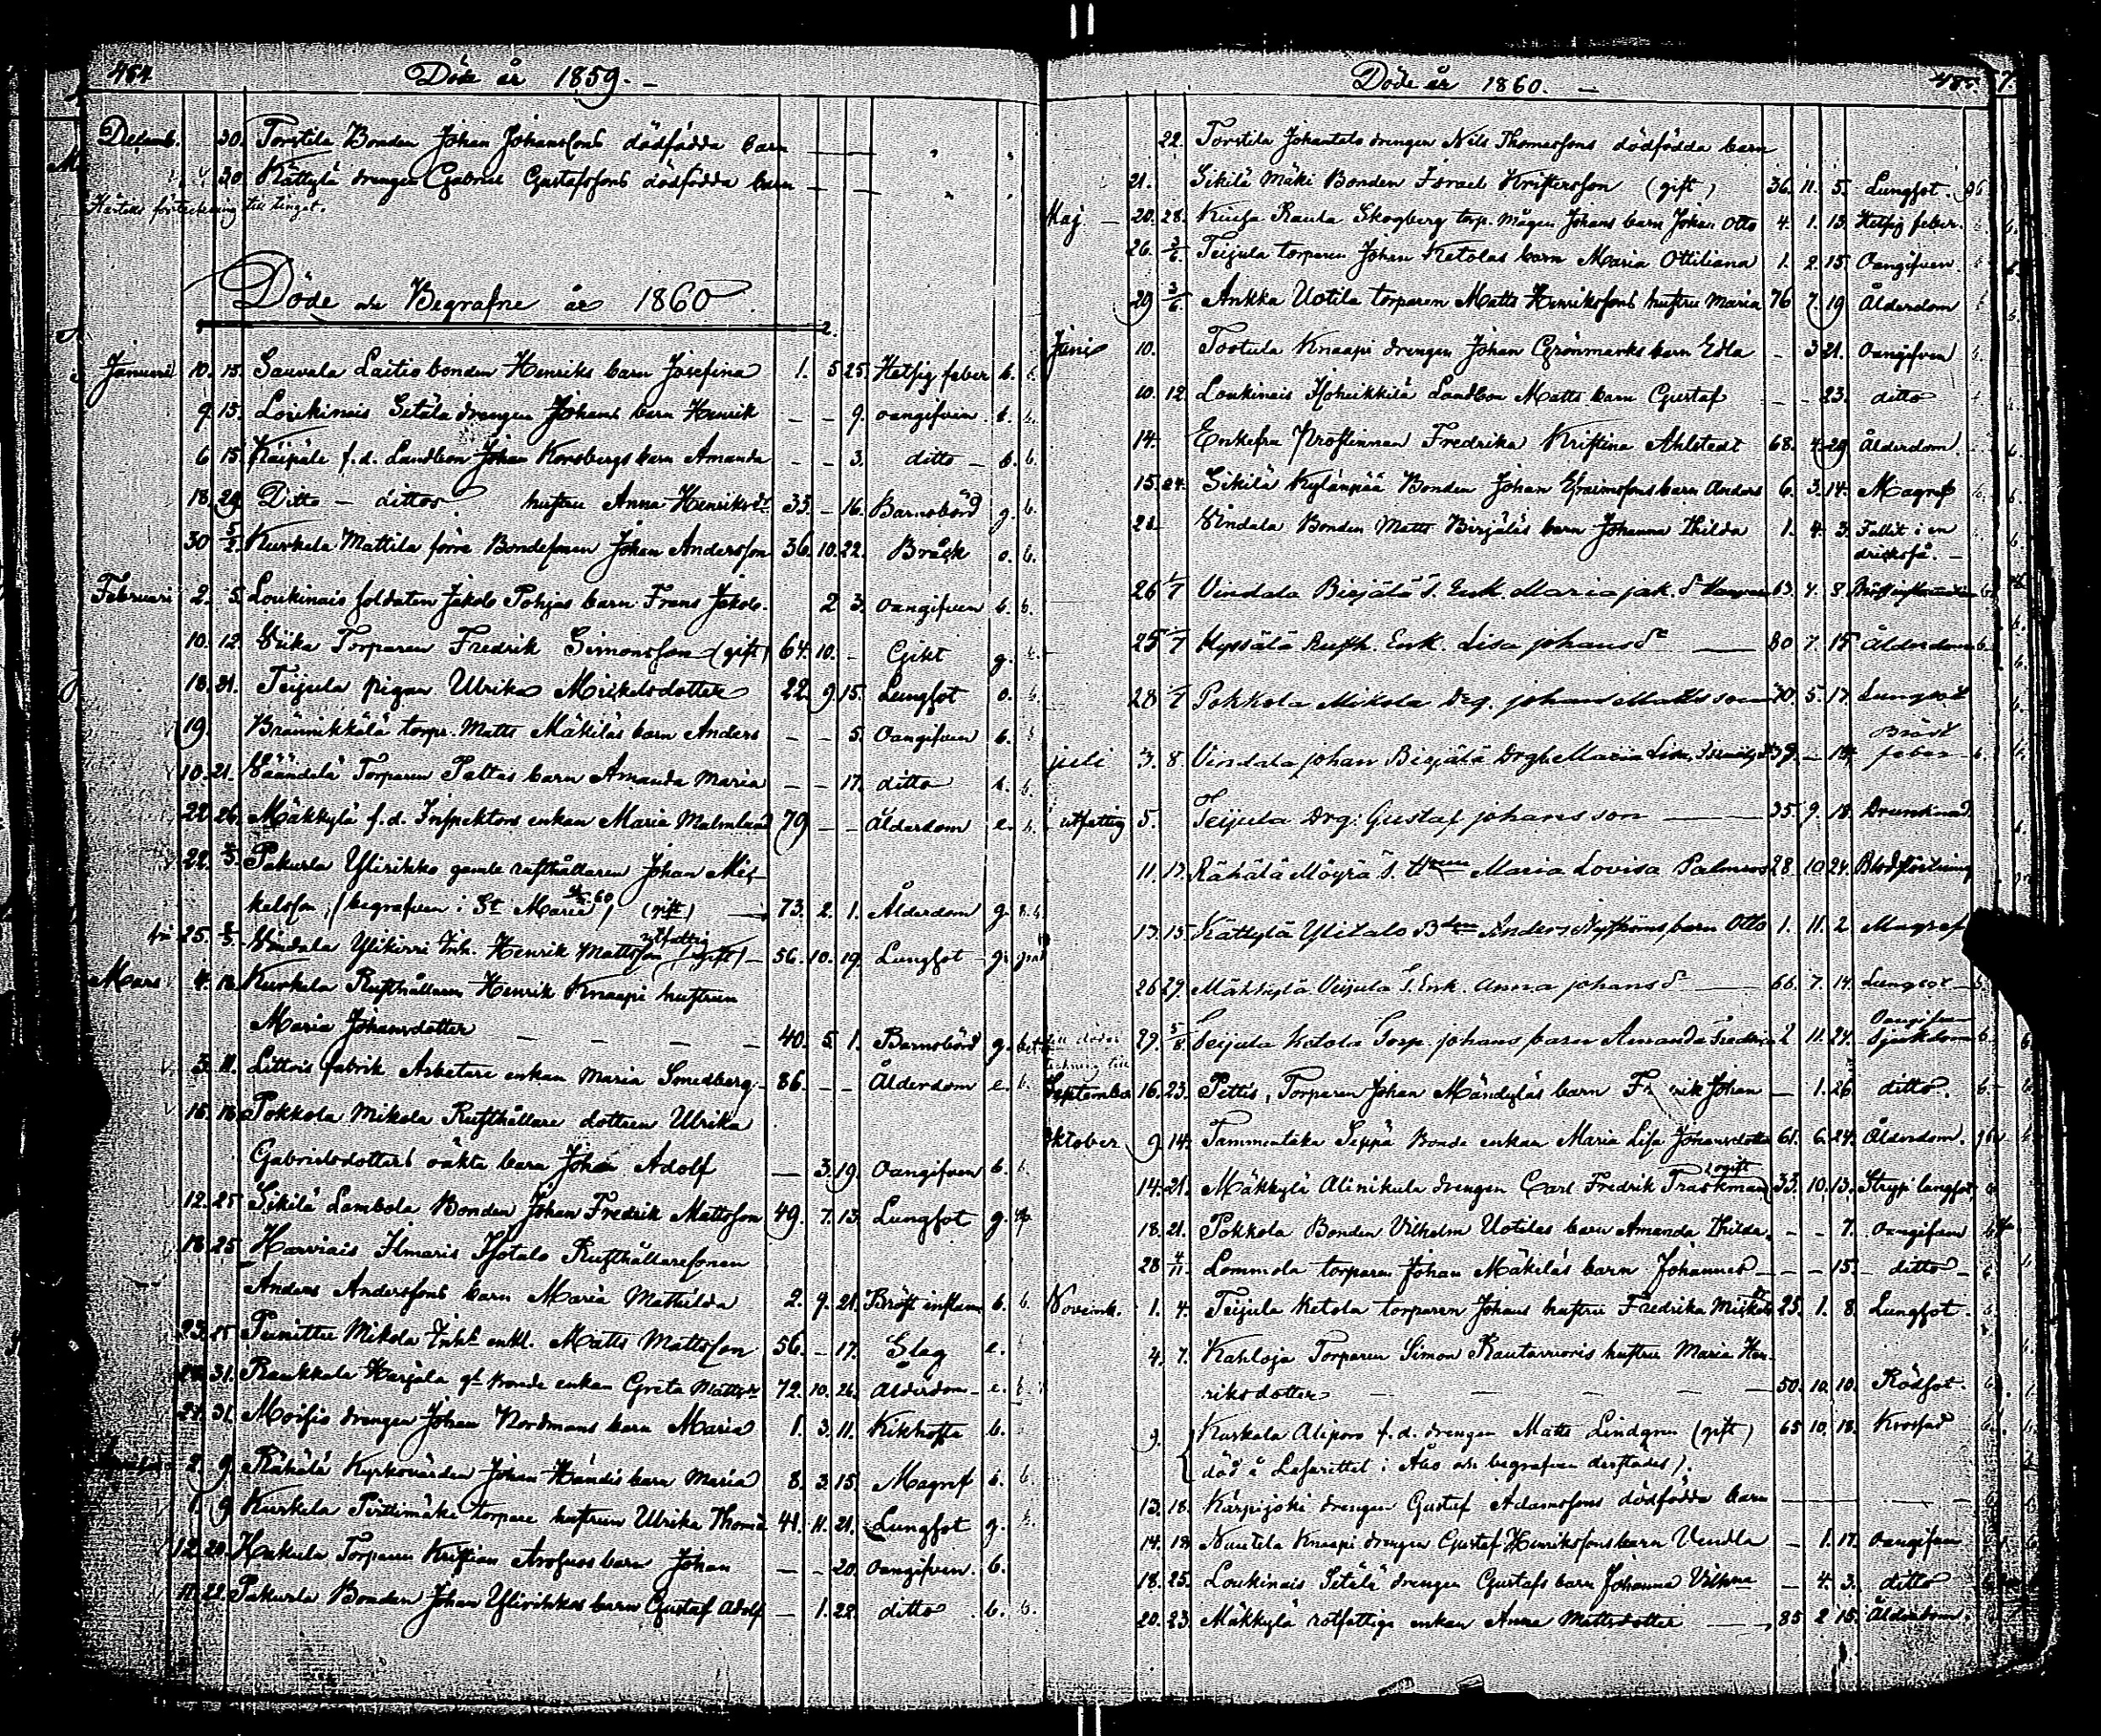 484 Döde år 1859.
Decemb. 30. Torstila Bonden Johan Johanssons dödfödda barn
30. Kättylä drengen Gabriel Gustafssons dödfödda barn
förteckning till tinget.
Döde och Begrafne år 1860
Januarii 10. 15. Sauvala Laitis bonden Henriks barn Josefina 1. 5. 25. Hetsig feber b. b.
9. 15. Loukinais Setälä drengen Johans barn Henrik — — 9. oangifven b. b.
6 15. Kaipale f.d. Landbon Johan Korsbergs barn Amanda — — 3. ditto — b. b.
18. 29. Ditto — dittos hustru Anna Henriksdr 33. — 16. Barnsbörd g. b.
30 5/2 Kurkela Mattila förre Bondesonen Johan Andersson 36. 10. 22. Bråck o. b.
Februari 2. 5. Loukinais soldaten Jakob Pohjas barn Frans Jakob. 2 3. oangifven b. b.
10. 12. Torparen Fredrik Simonsson (gift) 64. 10. — Gikt g. b.
18. 21. Teijula pigan Ulrika Mickelsdotter 22 9. 15. Lungsot o. b.
19. torpr. Matts Mäkiläs barn Anders — — 5. Oangifven b. b.
10. 21. Väändelä Torparen Taltas barn Amanda Maria — — 17. ditto b. b.
22. 26. Mäkkylä f.d. Inspektors enkan Maria Malmlund 79 — — Ålderdom e. b.
22. 2/3. Pakurla Ylirikko gamle rusthållaren Johan Mic-
kelsson, (begrafven i St Marie) (gift) — 73. 2. 1. Ålderdom g.
25. 2/3. Vindala Ylikirri Inh. Henrik Mattsson rotfattig (gift) — 56. 10. 19. Lungsot g.
Mars 4. 18. Kurkela Rusthållaren Henrik Knaapi hustrun
Maria Johansdotter — — — — 40. 5. 1. Barnsbörd g.
3. 11. Littois fabrik Arbetare enkan Maria Smedberg 86. — — Ålderdom e. b.
15. 18. Pokkola Mikola Rusthållare dottren Ulrika
Gabrielsdotters oäkta barn Johan Adolf — 3. 19. Oangifven b. b.
12. 25 Sikilä Lambola Bonden Johan Fredrik Mattsson 49. 7. 13. Lungsot g.
18. 25 Harviais Ilmaris Isotalo Rusthållaresonen
Anders Anderssons barn Maria Mathilda 2. 9. 21. Bröst inflam b. b.
23. 25 Punittu Mikola Inh. enkl. Matts Mattsson 56. — 17. Slag e.
31. Raukkala Harjala gl. Bonde enkan Greta Mattsdr 72. 10. 26. Ålderdom e.
27. 31. Moisio drengen Johan Nordmans barn Maria 1. 3. 11. Kikhosta b.
2. 9. Rähälä Kyrkovärden Johan Händis barn Maria 8. 3. 15. Magref b. b.
1. 9. Kurkela Pirttimäki torpare hustrun Ulrika Thomæ 41. 11. 21. Lungsot g. b.
12. 20. Hakula Torparen Kristian Arosuos barn Johan — — 20. oangifven. b.
11. 22. Pakurla Bonden Johan Ylirikkos barn Gustaf Adolf — 1. 22. ditto b. b.
Döde år 1860. 485.
22. Torstila Johantalo drengen Nils Thomassons dödfödda barn
21. Sikilä Mäki Bonden Israel Kristersson (gift) 36. 11. 5. Lungsot.
Maj 20. 28. Rauta Skogberg torp. mågen Johans barn Johan Otto 4. 1. 13. Hetsig feber.
26. 3/6 Teijula torparen Johan Ketolas barn Maria Ottiliana 1. 2. 15. Oangifven
29 3/6 Ankka Uotila torparen Matts Henrikssons hustru Maria 76 7. 19 Ålderdom
Juni 10. Tootula Knaapi drengen Johan Grönmarks barn Edla — 3 21. Oangifven
10. 12. Loukinais Isoheikkilä Landbon Matts barn Gustaf — — 23. ditto
14. Enkefru Prostinnan Fredrika Kristina Ahlstedt 68. 4. 29 Ålderdom.
15. 24. Sikilä Kylänpää Bonden Johan Efraimssons barn Anders 6. 3. 14. Magref
21 Vindala Bonden Matts Birjäläs barn Johanna Hilda 1. 4. 3. Fallit i en
dricksså.
26 1/7 Vindala Birjälä S. Enk. Maria jak. dr 63. 4. 8
25 1/7 Kyssälä Rusth. Enk. Lisa johansdr — 80 7. 15. Ålderdom b.
28 1/7 Pokkola Mikola Drg. johan Matts son 70. 5. 17. Lungsot
juli 3. 8. Vindala johan Birjälä Drgh. Maria Lisa 39. — feber b.
5. Teijula Drg. Gustaf johansson — 35. 9. 18. Drunknad
11. 17. Rähälä Möyrä S. Maria Lovisa Palmros 28. 10. 24. Blodförlisning
13. 15. Kättylä Ylitalo Anders barn Otto 1. 11. 2. Magref
26 29. Mäkkylä Veijula S. Enk. Anna johansdr — 66. 7. 14. Lungsot
29. 5/8 Teijula Ketola Torp. johans barn Amanda Fredrica 2 11. 24. Oangifven Sjukdom b.
September 16. 23. Pettis, Torparen Johan Mändyläs barn Johan — 1. 26. ditto. b.
Oktober 9. 14. Tammentaka Seppä Bonde enkan Maria Lisa Johansdotter 61. 6. 24. Ålderdom.
14. 21. Mäkkylä Alinikula drengen Carl Fredrik Träskman (ogift) 33. 10. 13. Stryp lungsot
18. 21. Pokkola Bonden Vilhelm Uotilas barn Amanda Hilda. — — 7. Oangifven
28 4/11. Lommola torparen Johan Mäkiläs barn Johannes — — — 15. ditto —
Novemb. 1. 4. Teijula Ketola torparen Johans hustru Fredrika Mickelsdr 25. 1. 8. Lungsot.
4. 7. Kahloja Torparen Simon Rautavuoris hustru Maria Hen-
riksdotter — — — — 50. 10. 10. Rödsot.
9. Kurkela Aliporo f.d. drengen Matts Lindgren (gift) 65 10. 18. Krossad
död å Lasarettet i Åbo och begrafven derstädes).
13. 18. Kärpijoki drengen Gustaf Adamssons dödfödda barn
14. 18. Nuutila Knaapi drengen Gustaf Henrikssons barn Vendla — 1. 17. oangifven
18. 25. Loukinais Setälä drengen Gustafs barn Johanna — 4. 3. ditto
20. 23. Mäkkylä rotfattiga enkan Anna Mattsdotter — 85 2 15. Ålderdom.